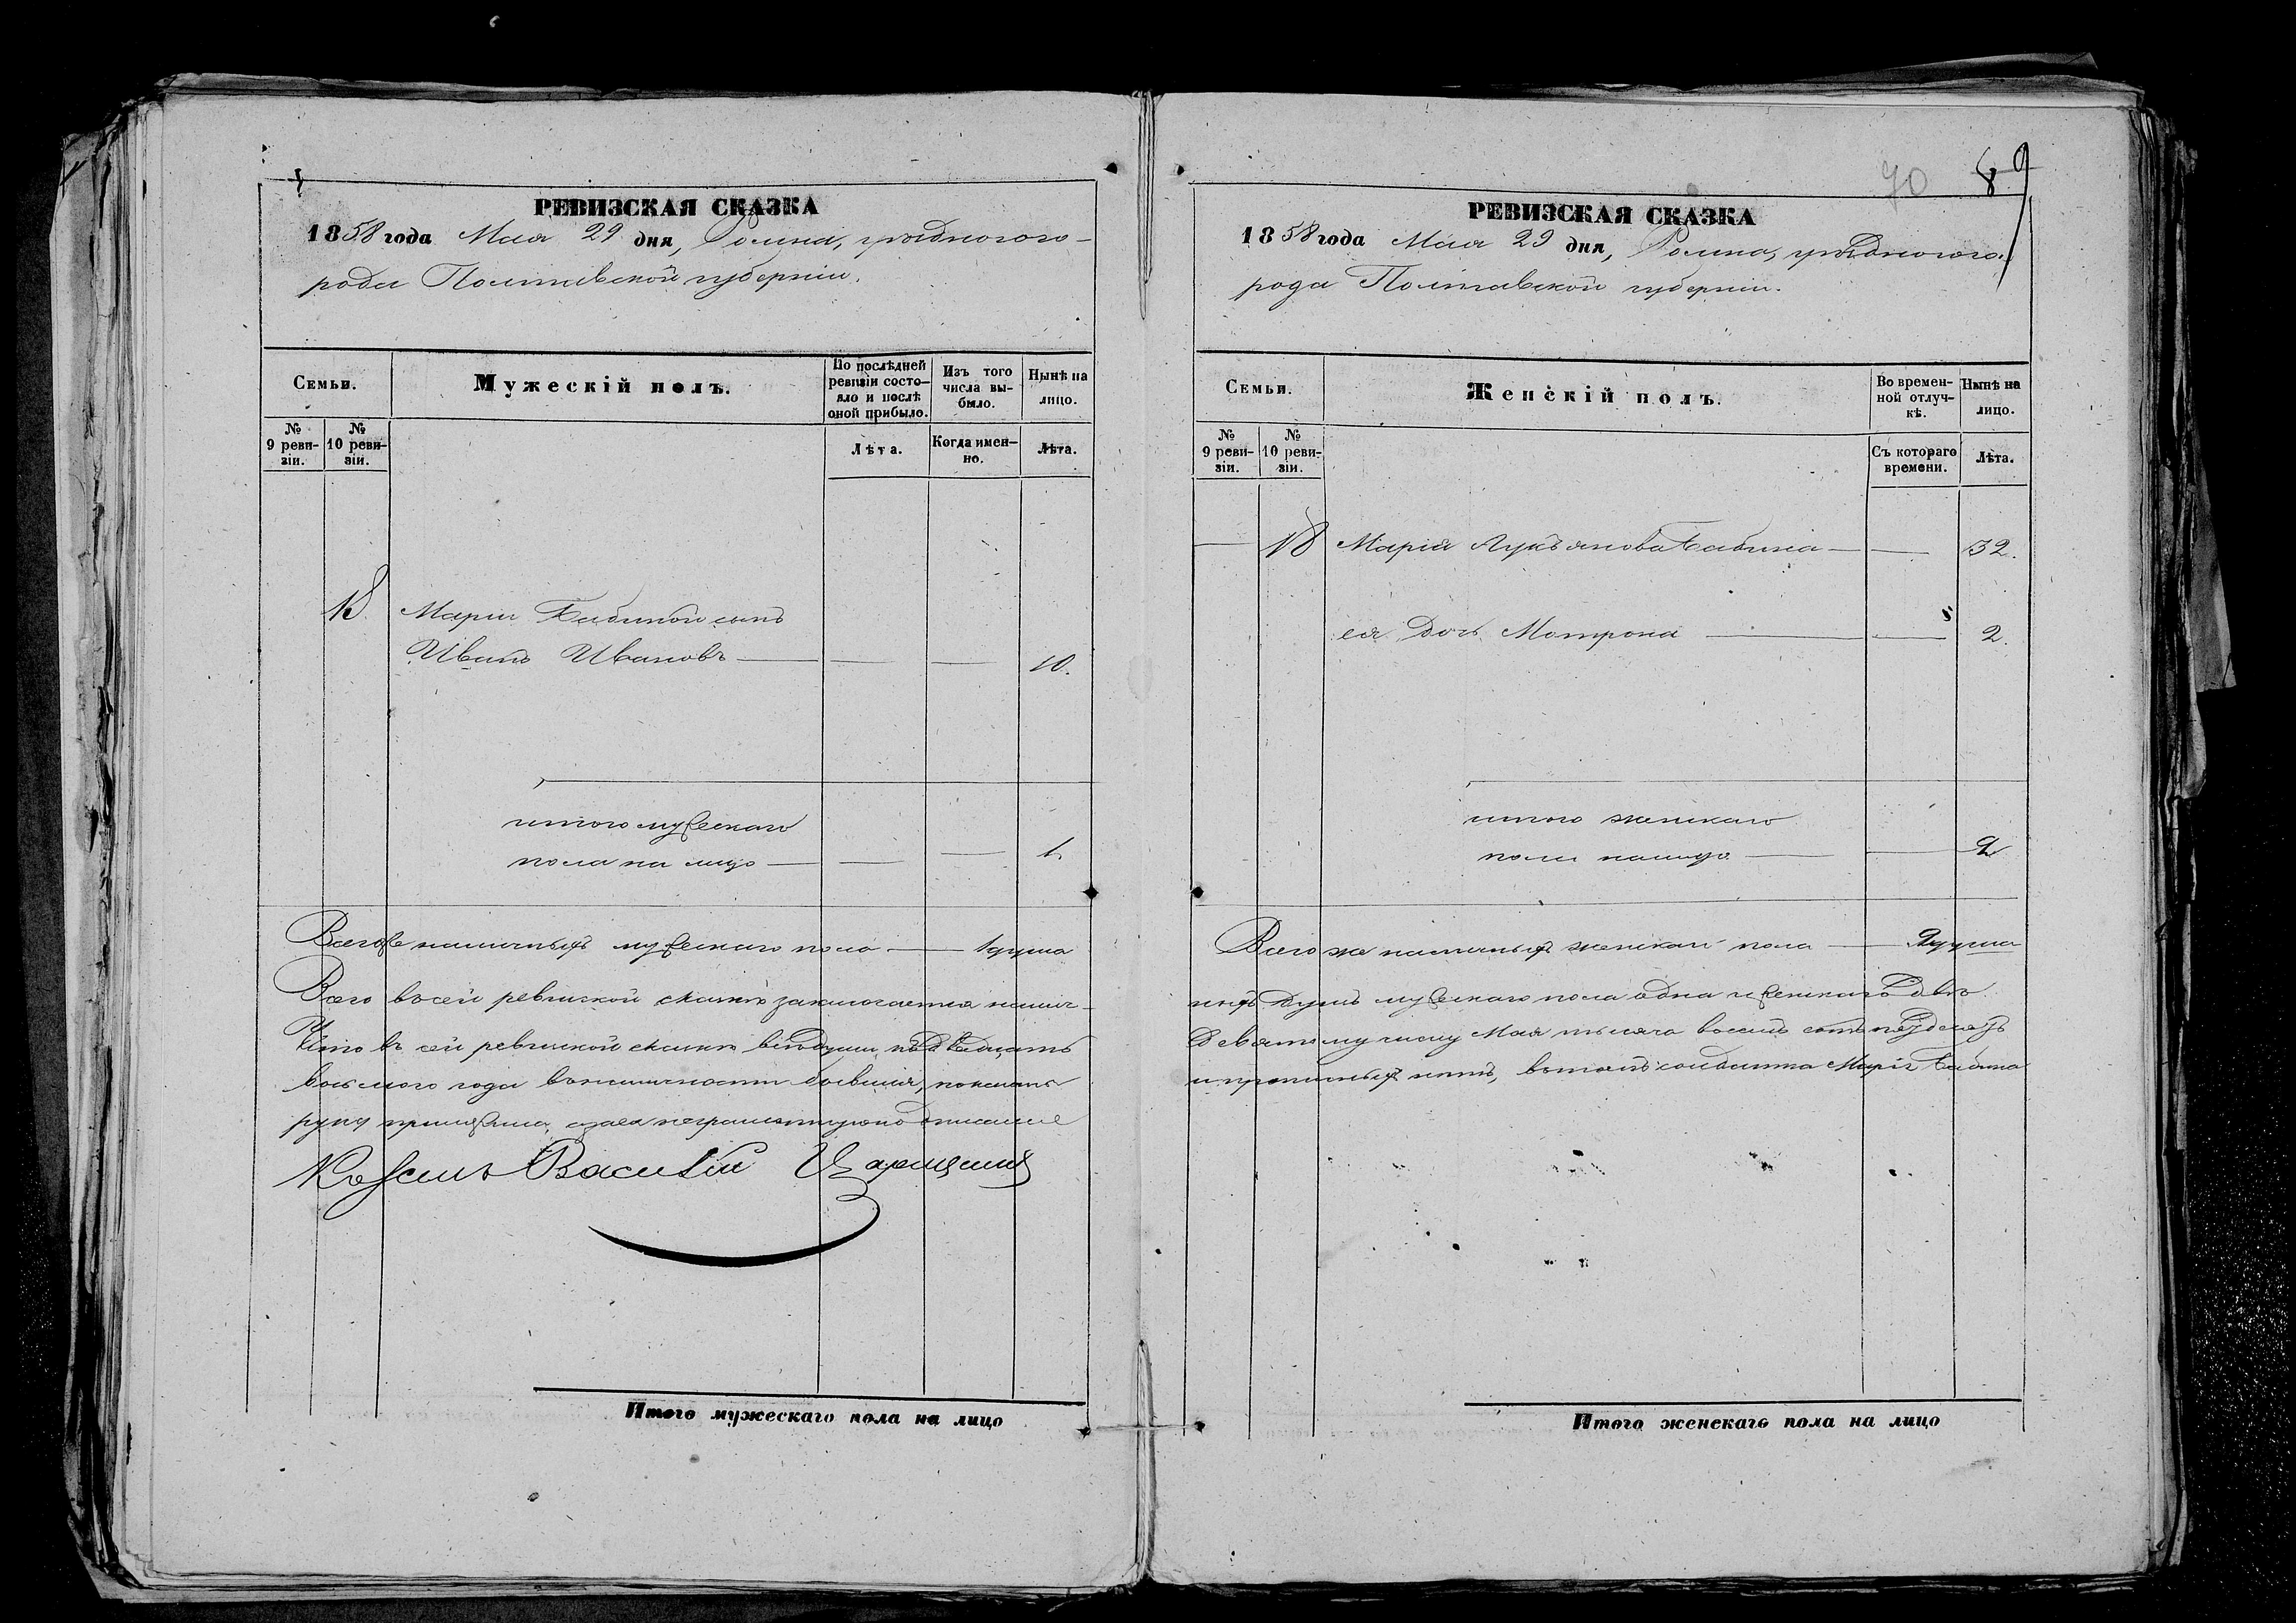 РЕВИЗСКАЯ СКАЗКА
1858 года Мая 29 дня, Ромна, уѣзднаго го-
рода Полтавской губерніи.
Семьи.
Мужескій полъ.
По послѣдней ревизіи состо-яло и послѣ оной прибыло.
Изъ того числа вы-было.
Нынѣ на лицо.
№ 9 реви-зіи.
№ 10 реви-зіи.
Лѣта.
Когда имен-но.
Лѣта.
18. Маріи Бабиной сынъ
Иванъ Ивановъ — — — 10.
итого мужескаго
пола на лицо — — — 1.
Всего же наличныхъ мужескаго пола — 1 душа
Всего въ сей ревизской сказкѣ заключается налич-
Что въ сей ревизской сказкѣ всѣ души, къ двадцать
восьмого года въ наличности бывшія, показаны
руку приложила, а за ея неграмотную подписался
Василій
Итого мужескаго пола на лицо
70 89
РЕВИЗСКАЯ СКАЗКА
1858 года Мая 29 дня, Ромна, уѣзднаго го-
рода Полтавской губерніи.
Семьи.
Женскій полъ.
Во времен-ной отлуч-кѣ.
Нынѣ на лицо.
№ 9 реви-зіи.
№ 10 реви-зіи.
Съ котораго времени.
Лѣта.
— 18 Марія Лукъянова Бабина — — 32.
ея дочь Мотрона — — 2.
итого женскаго
пола на лицо — — 2
Всего же наличныхъ женскаго пола — 2 души
ныхъ душъ мужескаго пола одна и женскаго двѣ.
девятому числу Мая тысяча восемь сотъ пятьдесятъ
и прописныхъ нѣтъ, въ томъ солдатка Марія Бабина
Итого женскаго пола на лицо